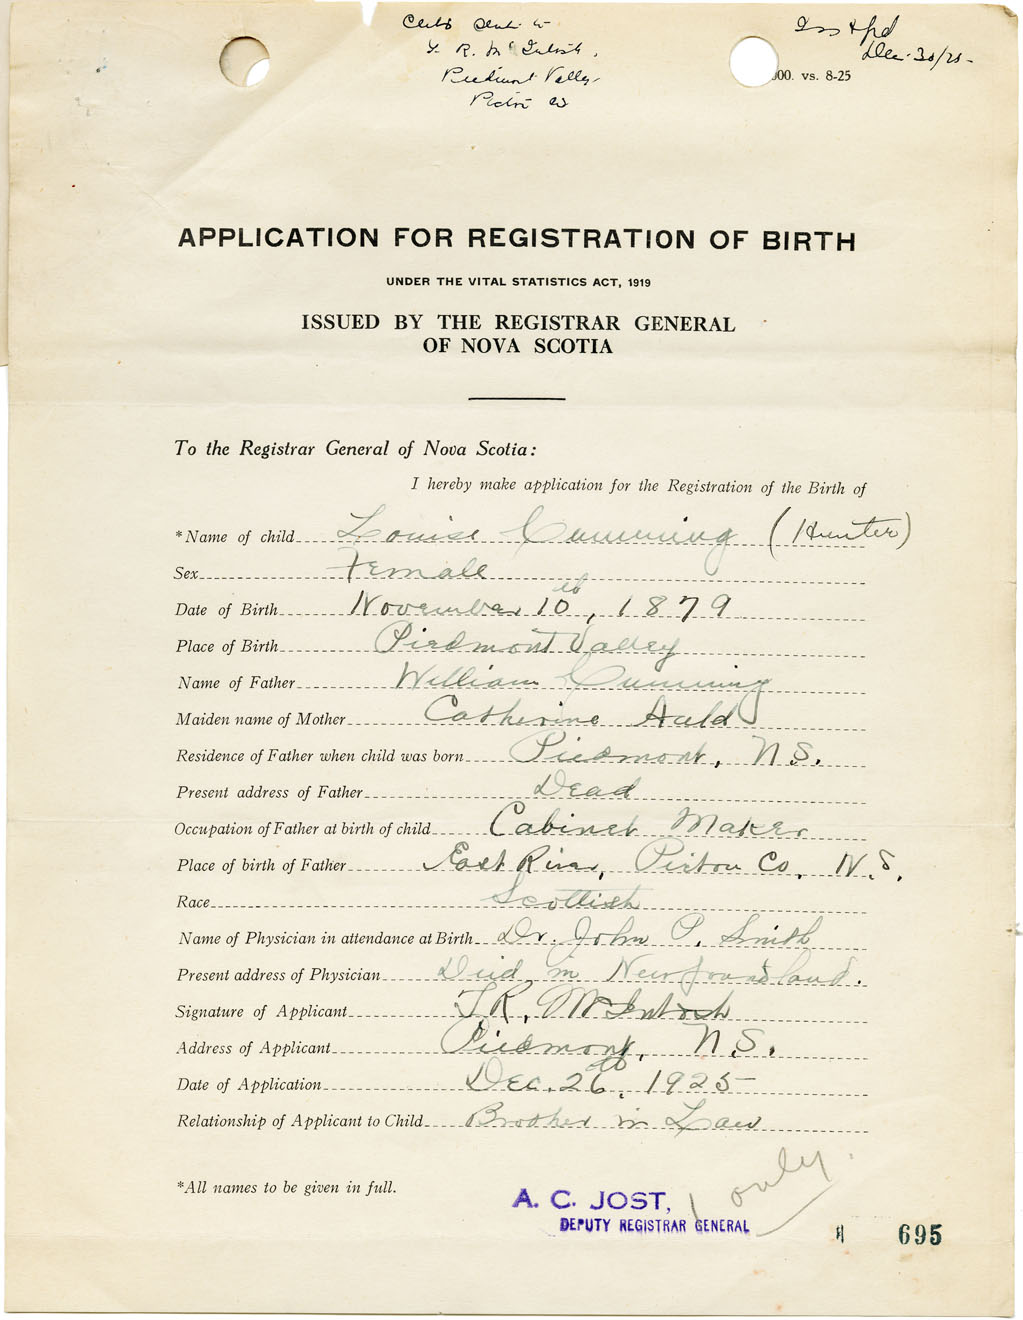 Iss & pd
Dec. 30/25-
Y. R. McIntosh,
Piedmont Valley
Pictou Co
000. vs. 8-25
APPLICATION FOR REGISTRATION OF BIRTH
UNDER THE VITAL STATISTICS ACT, 1919
ISSUED BY THE REGISTRAR GENERAL
OF NOVA SCOTIA
To the Registrar General of Nova Scotia:
I hereby make application for the Registration of the Birth of
*Name of child Louise Cumming (Hunter)
Sex Female
Date of Birth November 10th, 1879
Place of Birth Piedmont Valley
Name of Father William Cumming
Maiden name of Mother Catherine Auld
Residence of Father when child was born Piedmont, N.S.
Present address of Father Dead
Occupation of Father at birth of child Cabinet Maker
Place of birth of Father East River, Pictou Co. N.S.
Race Scottish
Name of Physician in attendance at Birth Dr. John P. Smith
Present address of Physician Died in Newfoundland.
Signature of Applicant R. McIntosh
Address of Applicant Piedmont, N.S.
Date of Application Dec. 26th, 1925
Relationship of Applicant to Child Brother in Law
*All names to be given in full.
1 only.
A. C. JOST,
DEPUTY REGISTRAR GENERAL
695